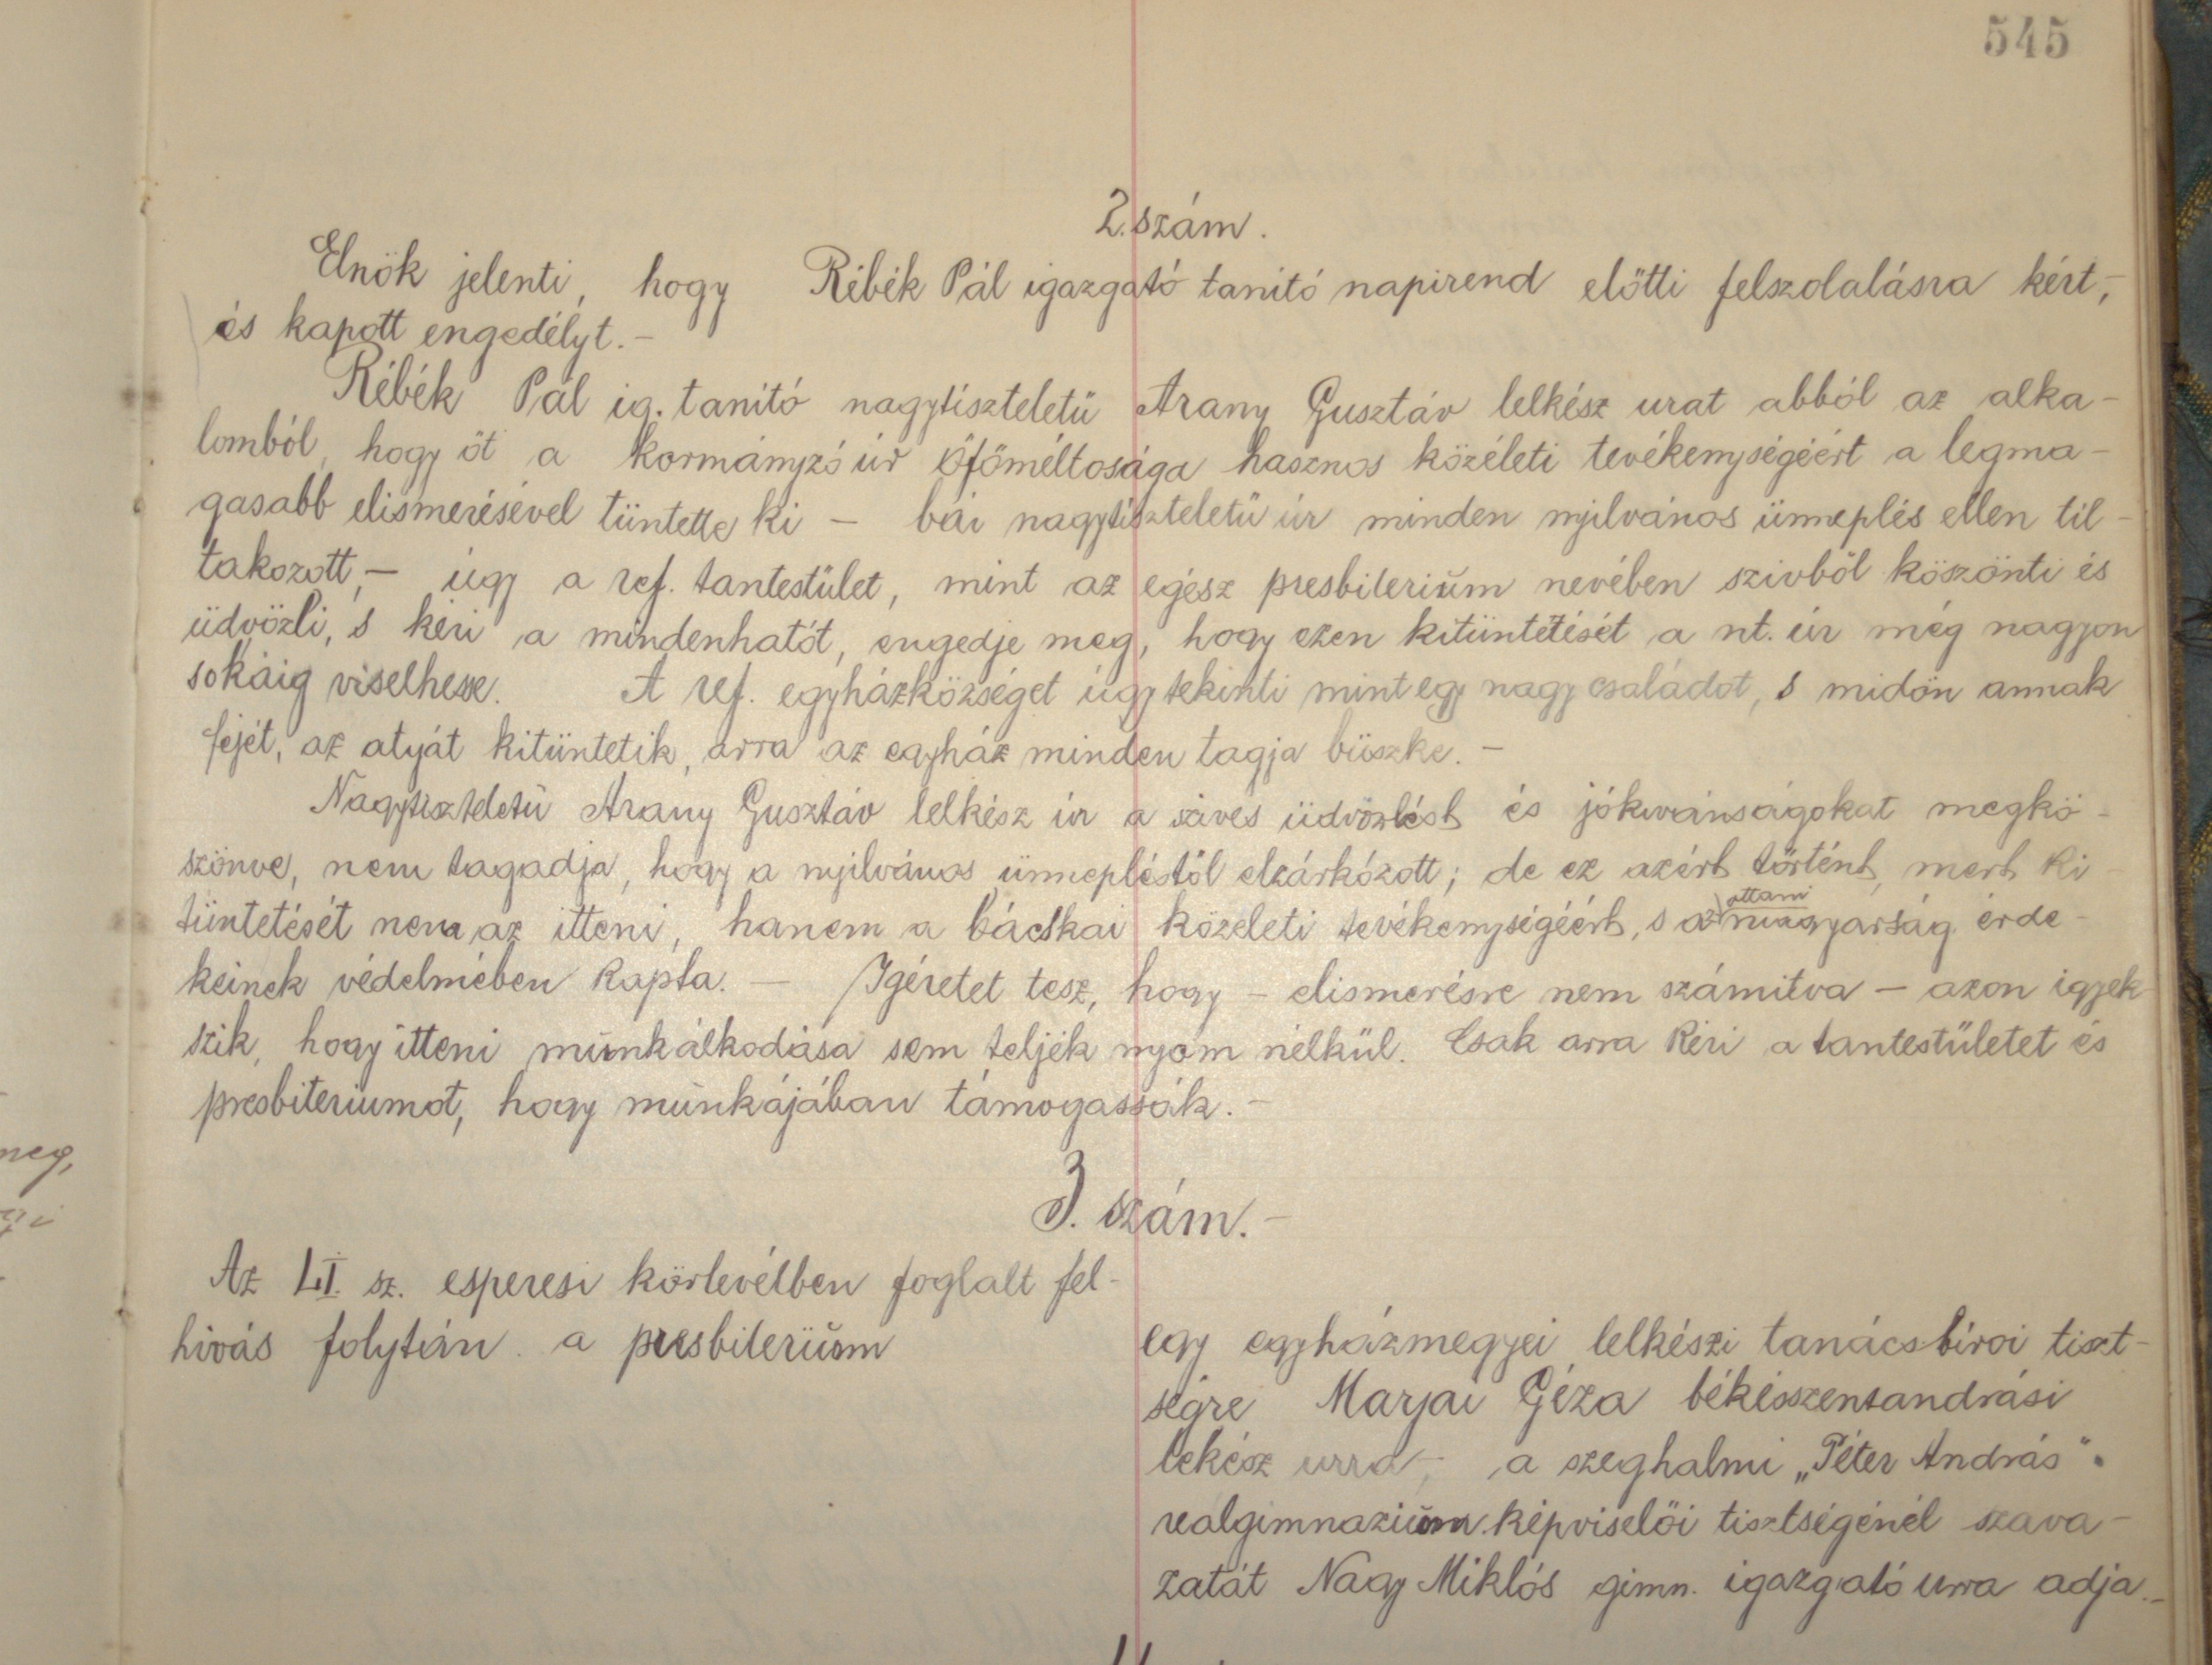 545
2. szám.
Elnök jelenti, hogy Rébék Pál igazgató tanító napirend előtti felszolalásra kért,-
és kapott engedélyt.-
Rébék Pál ig. tanító nagytiszteletű Arany Gusztáv lelkész urat abból az alka-
lomból, hogy őt a kormányzó úr őfőméltosága hasznos közéleti tevékenységéért a legma-
gasabb elismerésével tüntette ki - bár nagytiszteletű úr minden nyilvános ünneplés ellen til-
takozott,- úgy a ref. tantestület, mint az egész presbiterium nevében szivből köszönti és
üdvözli, s kéri a mindenhatót, engedje meg, hogy ezen kitüntetését a nt. úr még nagyon
sokáig viselhesse. A ref. egyházközséget úgy tekinti mint egy nagy családot, s midőn annak
fejét, az atyát kitüntetik, arra az egyház minden tagja büszke.-
Nagytiszteletü Arany Gusztáv lelkész úr a szives üdvözlést és jókivánságokat megkö-
szönve, nem tagadja, hogy a nyilvános ünnepléstől elzárkózott; de ez azért történt, mert ki-
tüntetését nem az itteni, hanem a bácskai közéleti tevékenységéért, s az ottani magyarság érde-
keinek védelmében kapta. - Igéretet tesz, hogy - elismerésre nem számitva - azon igyek-
szik, hogy itteni munkálkodása sem teljék nyom nélkül. Csak arra kéri a tantestületet és
presbiteriumot, hogy munkájában támogassák.-
3. szám.-
Az LI. sz. esperesi körlevélben foglalt fel-
hivás folytán a presbiterium
egy egyházmegyei lelkészi tanácsbírói tiszt-
ségre Marjai Géza békésszentandrási
lekész urra,- a szeghalmi „Péter András"
realgimnazium képviselői tisztségénél szava-
zatát Nagy Miklós gimn. igazgató urra adja.-
meg,